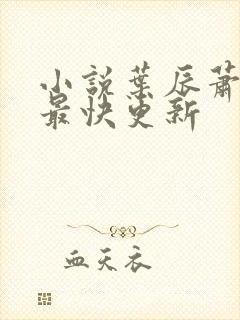 小說葉辰蕭
最快更新
血天衣